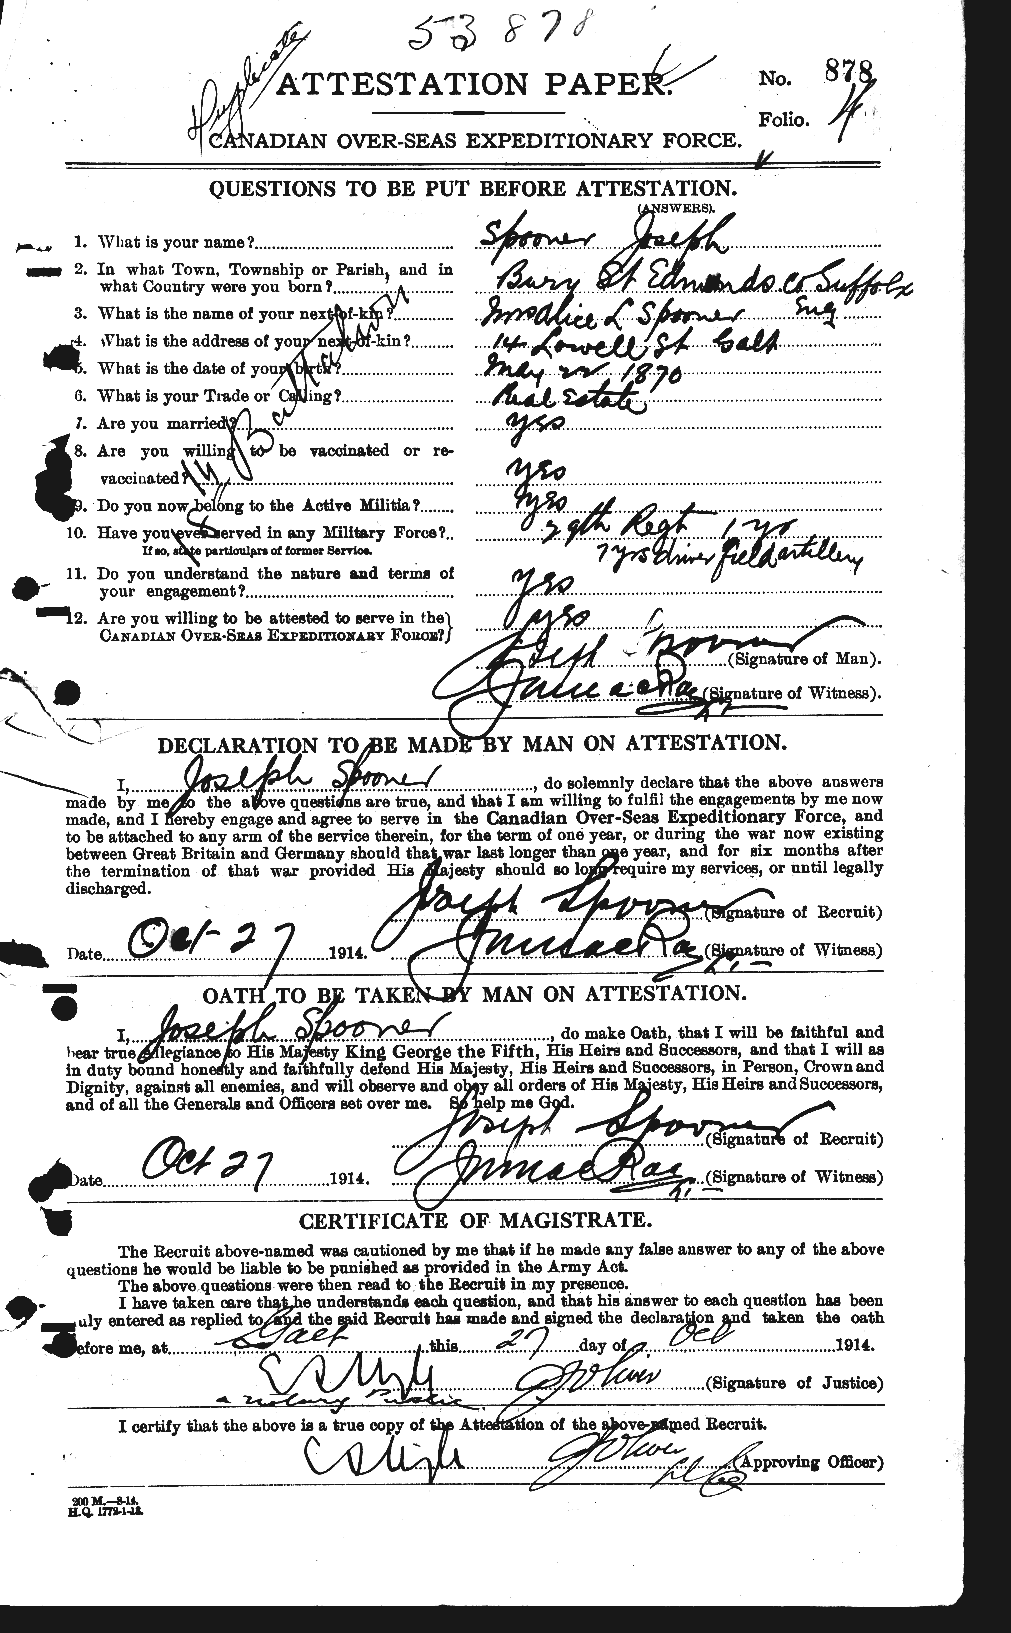 53878
Duplicate
ATTESTATION PAPER.
No. 878
Folio. 4
CANADIAN OVER-SEAS EXPEDITIONARY FORCE.
QUESTIONS TO BE PUT BEFORE ATTESTATION.
(ANSWERS).
1. What is your name? Spooner Joseph
2. In what Town, Township or Parish, and in
what Country were you born? Bury St Edmunds Co Suffolk
Eng
3. What is the name of your next-of-kin? Mrs Alice L Spooner
4. What is the address of your next-of-kin? 14 Lowell St Galt
5. What is the date of your birth? May 22 1870
6. What is your Trade or Calling? Real Estate
7. Are you married? yes
8. Are you willing to be vaccinated or re-
vaccinated? yes
9. Do you now belong to the Active Militia? yes
10. Have you ever served in any Military Force? 29th Regt 1 yr
If so, state particulars of former Service. 7 yrs driver field artillery
11. Do you understand the nature and terms of
your engagement? yes
12. Are you willing to be attested to serve in the
CANADIAN OVER-SEAS EXPEDITIONARY FORCE? yes
18th Battalion
Joseph Spooner (Signature of Man).
(Signature of Witness).
DECLARATION TO BE MADE BY MAN ON ATTESTATION.
I, Joseph Spooner, do solemnly declare that the above answers
made by me to the above questions are true, and that I am willing to fulfil the engagements by me now
made, and I hereby engage and agree to serve in the Canadian Over-Seas Expeditionary Force, and
to be attached to any arm of the service therein, for the term of one year, or during the war now existing
between Great Britain and Germany should that war last longer than one year, and for six months after
the termination of that war provided His Majesty should so long require my services, or until legally
discharged.
Joseph Spooner (Signature of Recruit)
Date Oct 27 1914. (Signature of Witness)
OATH TO BE TAKEN BY MAN ON ATTESTATION.
I, Joseph Spooner, do make Oath, that I will be faithful and
bear true Allegiance to His Majesty King George the Fifth, His Heirs and Successors, and that I will as
in duty bound honestly and faithfully defend His Majesty, His Heirs and Successors, in Person, Crown and
Dignity, against all enemies, and will observe and obey all orders of His Majesty, His Heirs and Successors,
and of all the Generals and Officers set over me. So help me God.
Joseph Spooner (Signature of Recruit)
Date Oct 27 1914. (Signature of Witness)
CERTIFICATE OF MAGISTRATE.
The Recruit above-named was cautioned by me that if he made any false answer to any of the above
questions he would be liable to be punished as provided in the Army Act.
The above questions were then read to the Recruit in my presence.
I have taken care that he understands each question, and that his answer to each question has been
uly entered as replied to, and the said Recruit has made and signed the declaration and taken the oath
efore me, at Galt this 27 day of Oct 1914.
(Signature of Justice)
a Notary Public
I certify that the above is a true copy of the Attestation of the above-named Recruit.
(Approving Officer)
200 M.—8-14.
H.Q. 1772-1-13.